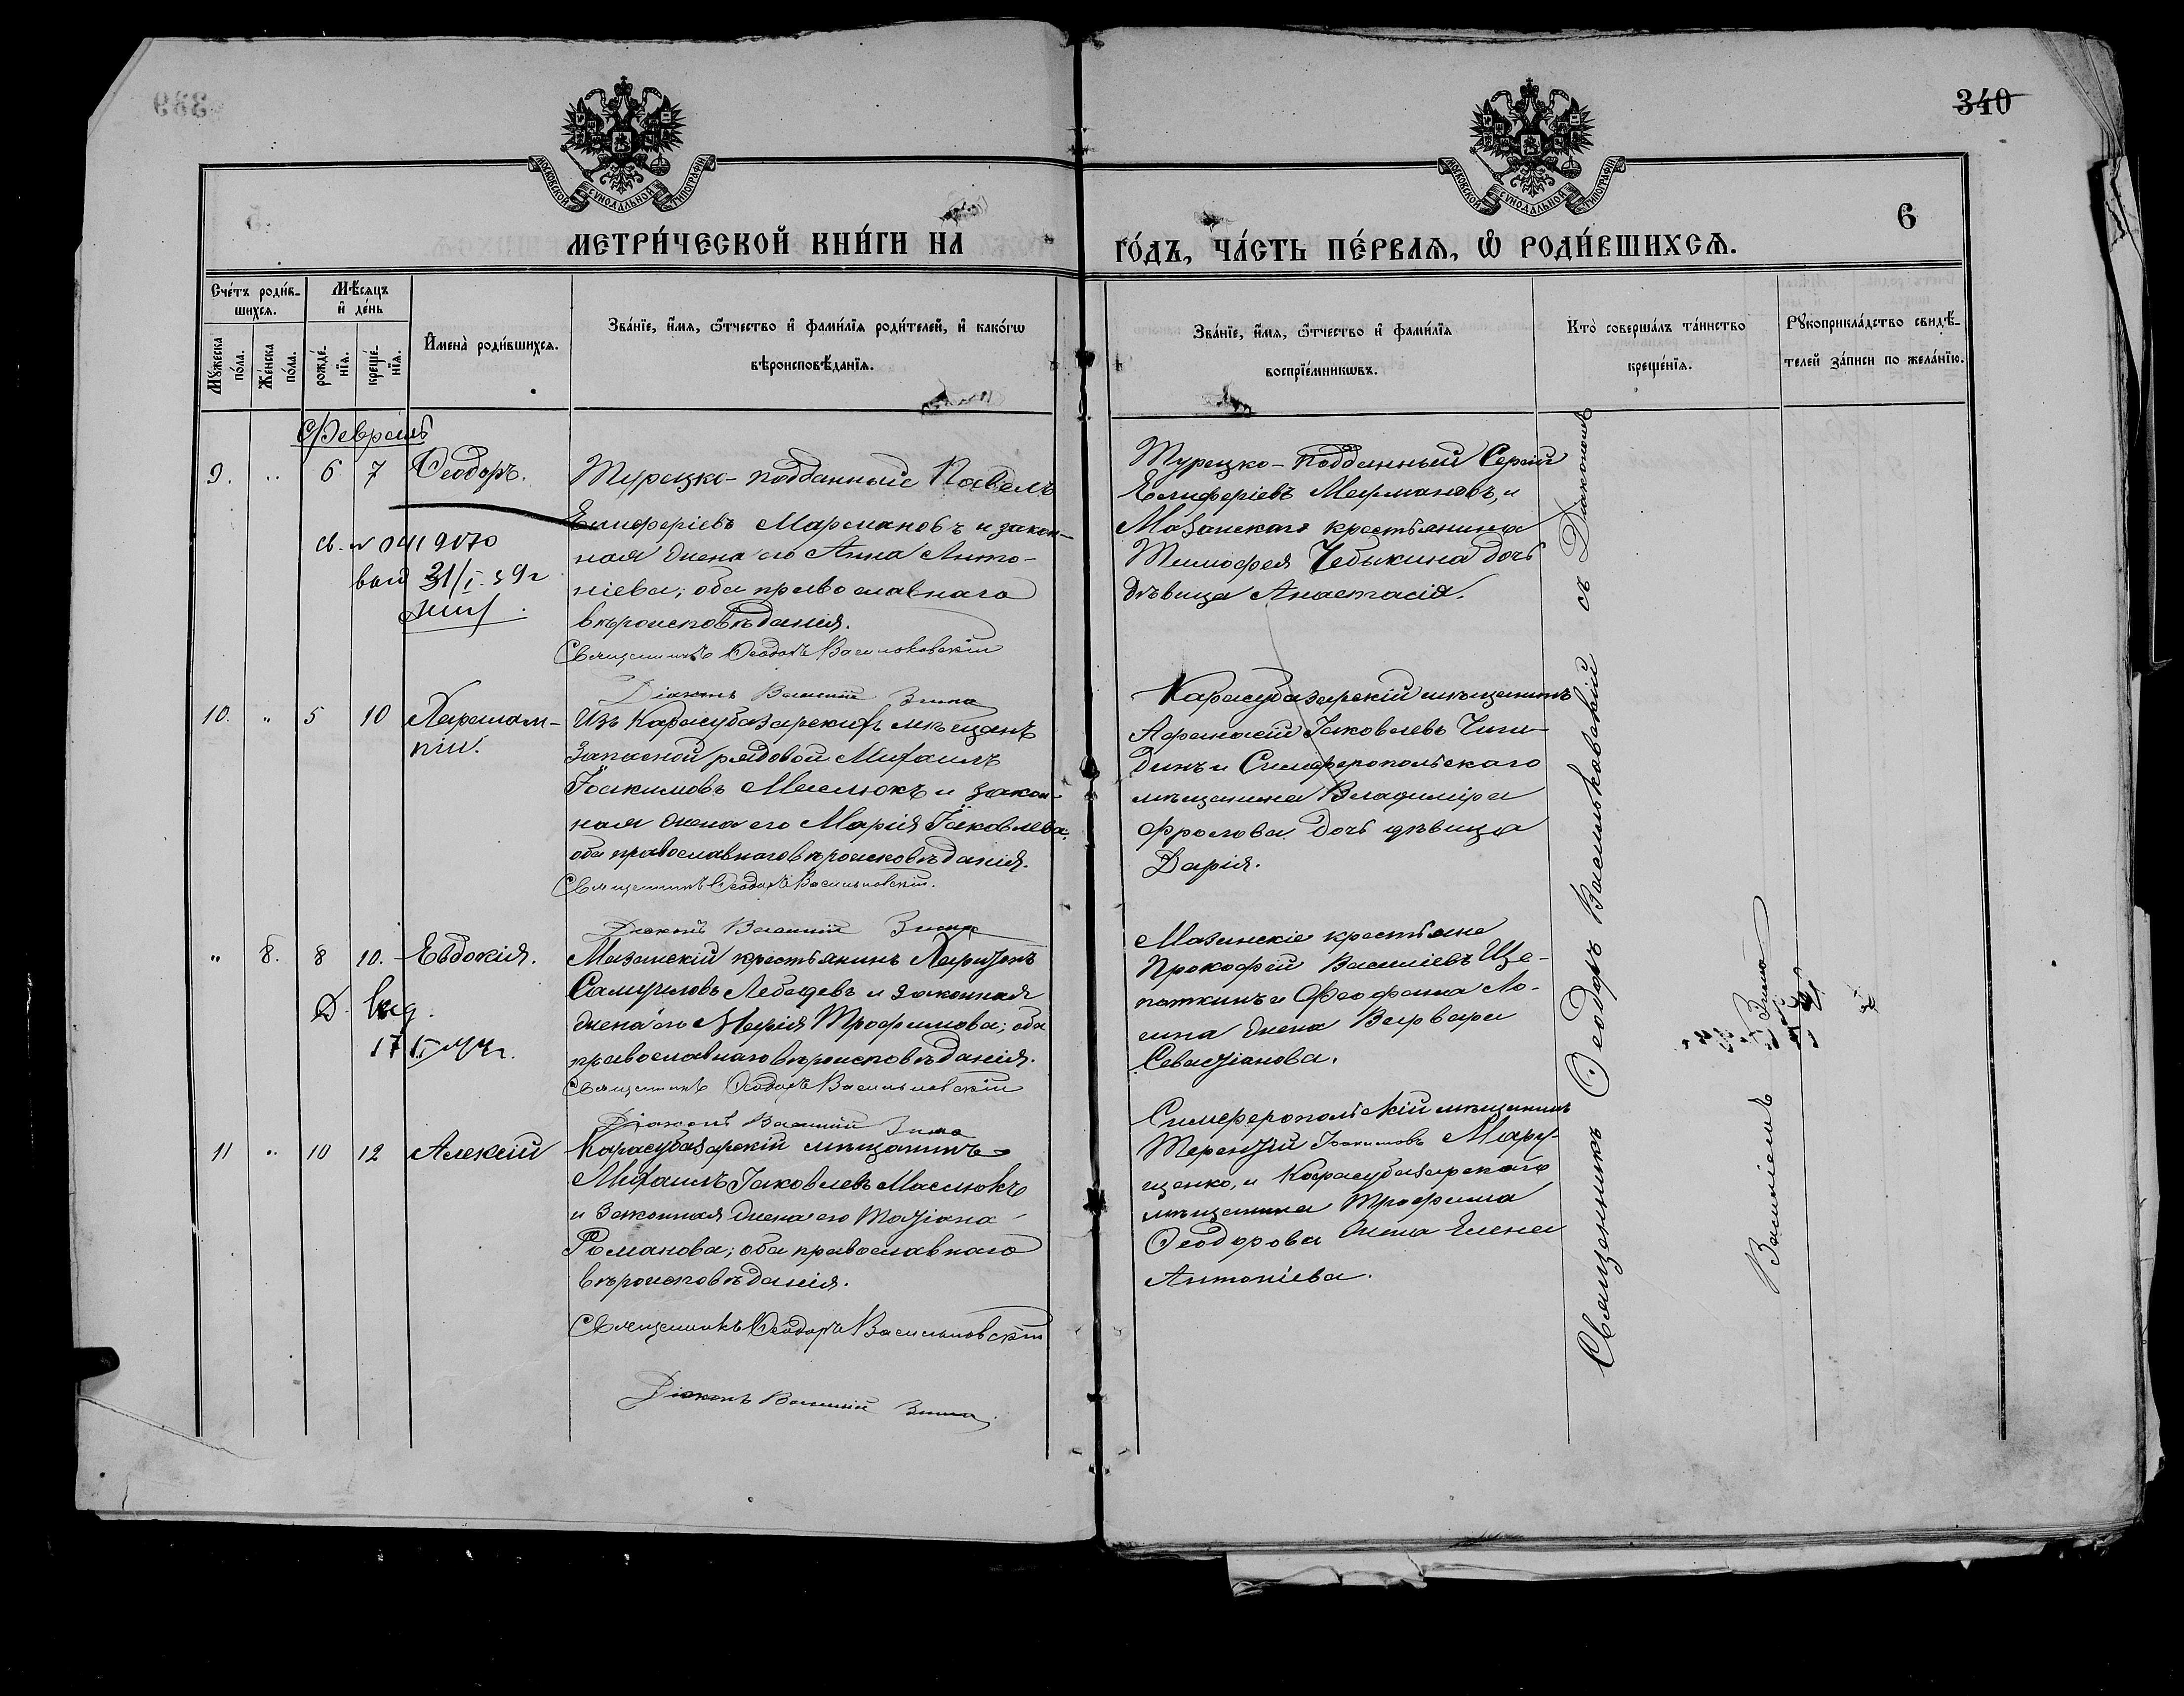 340
МОСКОВСКОЙ СУНОДАЛЬНОЙ ТИПОГРАФІИ
МОСКОВСКОЙ СУНОДАЛЬНОЙ ТИПОГРАФІИ
6
МЕТРИ́ЧЕСКОЙ КНИ́ГИ НА
ГО́ДЪ, ЧА́СТЬ ПЕ́РВАѦ, Ѡ҆ РОДИ́ВШИХСѦ.
Сче́тъ роди́в-
шихсѧ.
Мѣ́сѧцъ
и҆ де́нь
Мꙋ́жеска
по́ла.
Же́нска
по́ла.
рожде́-
нїѧ.
креще́-
нїѧ.
И҆мена̀ роди́вшихсѧ.
Зва́нїе, и҆́мѧ, ѻ҆́тчество и҆ фами́лїѧ роди́телей, и҆ како́гѡ
вѣроисповѣ́данїѧ.
Зва́нїе, и҆́мѧ, ѻ҆́тчество и҆ фами́лїѧ
воспрїе́мникѡвъ.
Кто̀ соверша́лъ та́инство
креще́нїѧ.
Рꙋкоприкла́дство свидѣ́-
телей за́писи по жела́нїю.
Февраль
9. " 6 7 Ѳеодоръ.
Турецко-подданный Павелъ
Елиферіевъ Мармановъ и закон-
ная жена его Анна Анто-
ніева; оба православнаго
вѣроисповѣданія.
Священникъ Ѳеодоръ Васильковскій
Діаконъ Василій Зима
Турецко-подданный Сергій
Елиферіевъ Мармановъ, и
Мазанскаго крестьянина
Тимофея Чебыкина дочь
дѣвица Анастасія.
св. 0419170
выд 31/I. 39г
10. " 5 10 Харалам-
пій.
Изъ Карасубазарскихъ мѣщанъ
запасной рядовой Михаилъ
Іоакимовъ Маслюкъ и закон-
ная жена его Марія Іаковлева,
оба православнаго вѣроисповѣданія.
Священникъ Ѳеодоръ Васильковскій.
Діаконъ Василій Зима
Карасубазарскій мѣщанинъ
Афанасій Іаковлевъ
и Симферопольскаго
мѣщанина Владиміра
Фролова дочь дѣвица
Дарія.
" 8. 8 10. Евдокія.
Мазанскій крестьянинъ Харитонъ
Самуиловъ Лебедевъ и законная
жена его Марія Трофимова; оба
православнаго вѣроисповѣданія.
Священникъ Ѳеодоръ Васильковскій
Діаконъ Василій Зима
Мазанскіе крестьяне
Прокофій Василіевъ Ще-
поткинъ и Феофана Ло-
жена Варвара
Севастіанова.
11 " 10 12 Алексій
Карасубазарскій мѣщанинъ
Михаилъ Іаковлевъ Маслюкъ
и законная жена его Татіана
Романова; оба православнаго
вѣроисповѣданія.
Священникъ Ѳеодоръ Васильковскій
Діаконъ Василій Зима
Симферопольскій мѣщанинъ
Терентій Іоакимовъ Мару-
щенко, и Карасубазарскаго
мѣщанина Трофима
Ѳеодорова жена Елена
Антоніева.
Священникъ Ѳеодоръ Васильковскій съ Діакономъ
Василіемъ Зимою